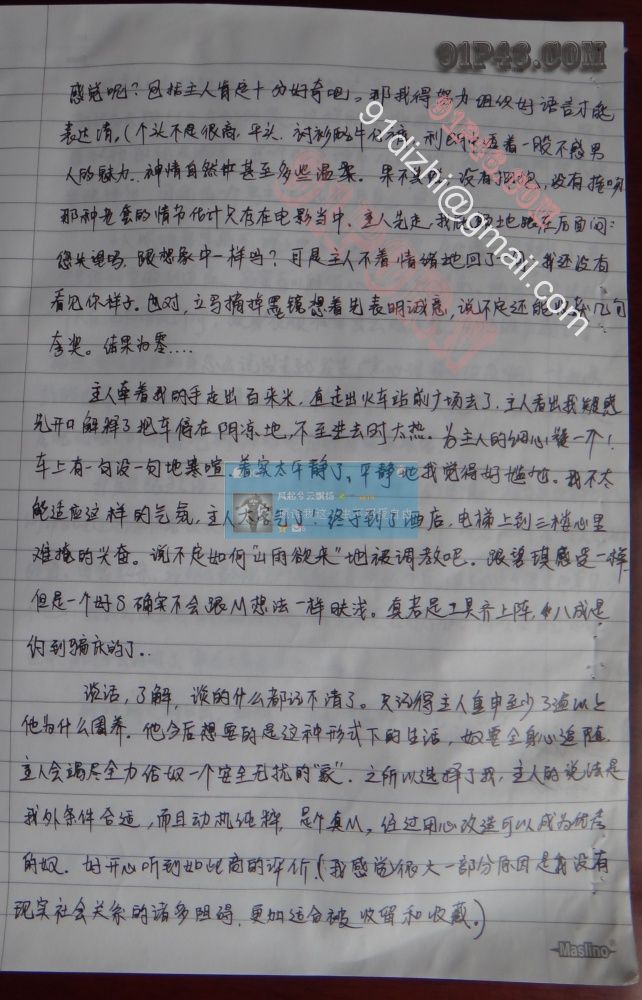 91P48.COM
感觉呢？包括主人肯定十分好奇吧。那我得努力组织好语言才能
表达清。（个头不是很高，平头，衬衫配牛仔裤，一股不惑男
人的魅力，神情自然中甚至多些温柔。果不其然，没有拥抱，没有接吻
那种老套的情节估计只存在电影当中。主人先走，我地跟在后面问：
您失望吗，跟想象中一样吗？可是主人不着情绪地回了一句，我还没有
看见你样子。也对，立马摘掉墨镜想着先表明诚意，说不定还能几句
夸奖。结果为零....
主人牵着我的手走出百来米，直走出火车站前广场去了，主人看出我疑惑
先开口解释了把车停在阴凉地，不至进去时太热。为主人的细心赞一个！
车上有一句没一句地寒暄，着实太平静了，平静地我觉得好尴尬。我不太
能适应这样的气氛，主人太客气了。终于到了酒店，电梯上到三楼心里
难掩的兴奋。说不定如何“山雨欲来”地被调教吧。跟望琪感觉一样
但是一个好S确实不会跟M想法一样肤浅。真若是工具齐上阵，八成是
约到骗床的了..
谈话，了解，谈的什么都记不清了。只记得主人重申至少3遍以上
他为什么圈养。他今后想要的是这种形式下的生活，奴要全身心追随，
主人会竭尽全力给奴一个安全无扰的“家”。之所以选择了我，主人的说法是
我外条件合适，而且动机纯粹，是个真M，经过用心改造可以成为优秀
的奴。好开心听到如此高的评价！（我感觉很大一部分原因是我没有
现实社会关系的诸多阻碍，更加适合被收留和收藏。）
91dizhi@gmail.com
91P48.COM
风起兮云飘扬
Maslino